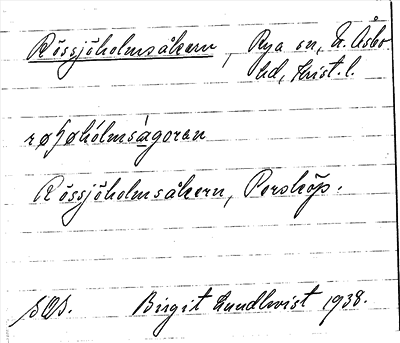 Rössjöholmsåkern, Rya sn, N. Åsbo
hd, Krist. l.
røʃøhólmsàgoran
Rössjöholmsåkern, Perstorp.
SOS. Birgit Lundkvist 1938.